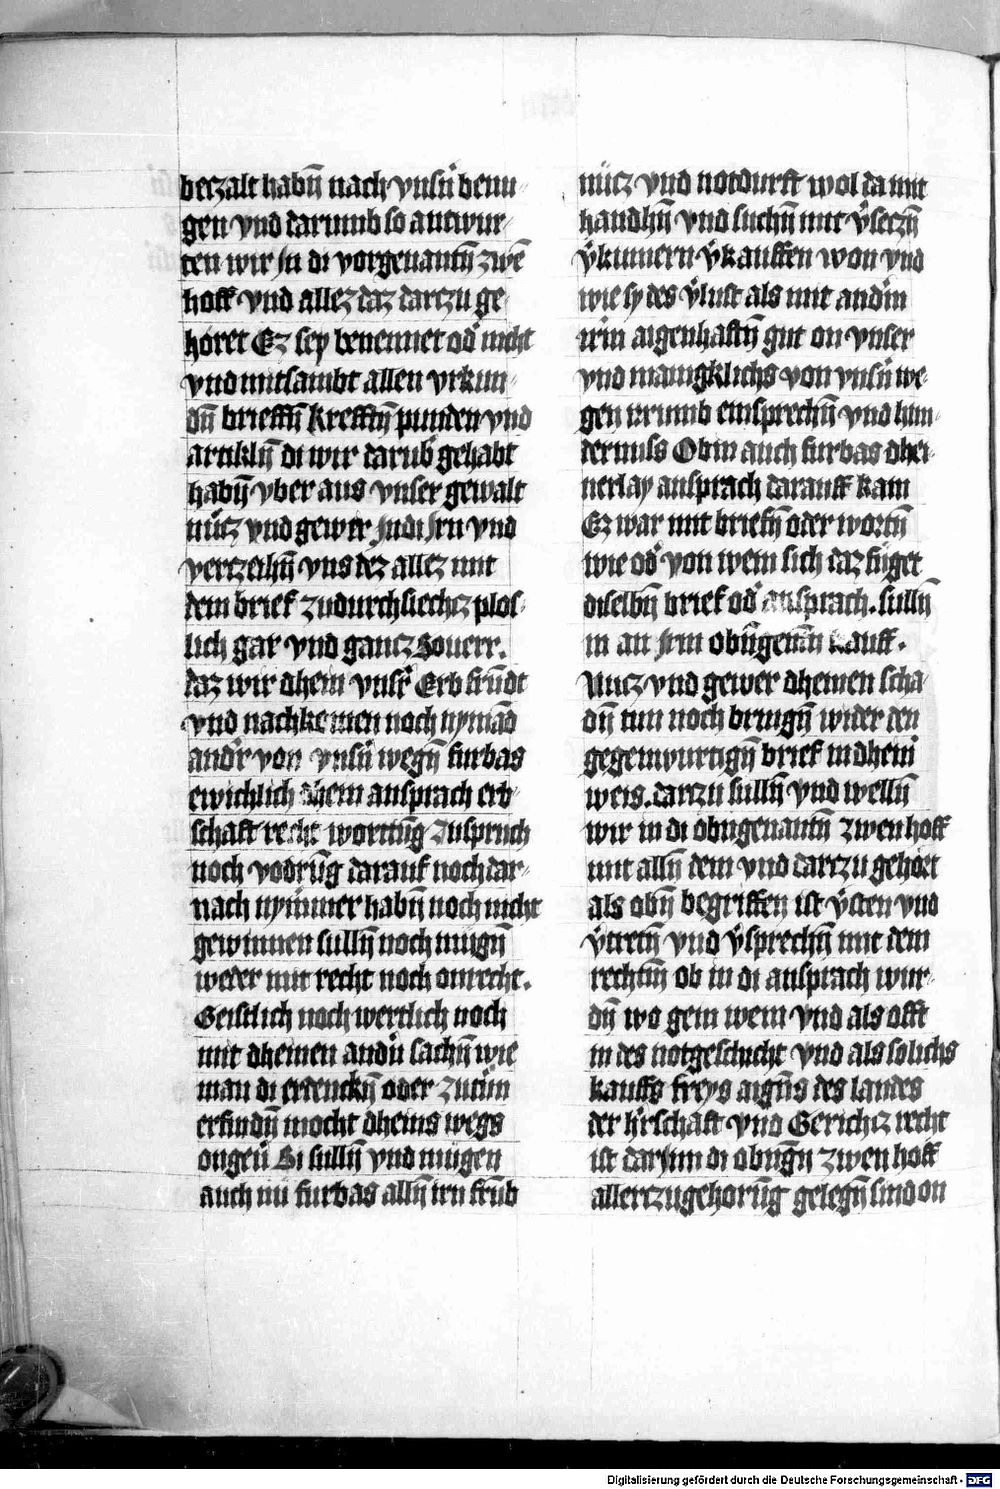 beczalt habn̄ nach vnsn̄ benu-
gen vnd darumb so antwur-
ten wir Jn di vorgenantn̄ zwē
hoff vnd allez daz darczu ge-
horet Ez sey benennet od̓ nicht
vnd mitsambt allen vrkun-
dn̄ brieffn̄ krefftn̄ punden vnd
artikln̄ di wir darub̓ gehabt
habn̄ vber aus vnser gewalt
nücz vnd gewer Jndi Jrn vnd
verczeihn̄ vns dez allez mit
dem brief zudurchslechcz plos-
lich gar vnd gancz Souerr.
daz wir dhein vnsr̓ Erb frūdt
vnd nachkomen noch nymād
and̓r von vnsn̄ wegn̄ furbas
ewichlich dhein ansprach erb-
schaft recht wortūg zuspruch
noch vodrūg darauf noch dar-
nach nymmer habn̄ noch nicht
gewinnen sulln̄ noch mugn̄
weder mit recht noch onrecht.
Geistlich noch werltlich noch
mit dheinen and̓n sachn̄ wie
man di erdenckn̄ oder zutūn
erfindn̄ mocht dheins wegs
ongeū Si sulln̄ vnd mügen
auch nū furbas alln̄ irn frūb
nücz vnd notdurft wol damit
handln̄ vnd suchn̄ mit v̓seczn̄
v̓kumern v̓kauffen won vnd
wie sy des v̓lust als mit and̓m
irm aigenhaftn̄ gut on vnser
vnd manigklichs von vnsn̄ we-
gen irrumb einsprechn̄ vnd hin-
dernuss Obin auch furbas dhei-
nerlay ansprach darauff kam
Ez war mit briefn̄ oder wortn̄
wie od̓ von wem sich daz füget
diselbn̄ brief od̓ ansprach. sulln̄
in an Jrm obn̄genan̄ kauff.
Nucz vnd gewer dheinen scha-
dn̄ tun noch bringn̄ wider den
gegenwurtign̄ brief in dhein̓
weis. darczu sulln̄ vnd welln̄
wir in di obngenantn̄ zwen hoff
mit alln̄ dem vnd darczu gehört
als obn̄ begriffen ist v̓sten vnd
v̓tretn̄ vnd v̓sprechn̄ mit dem
rechtn̄ ob in di ansprach wur-
dn̄ wo gein wem vnd als offt
in des notgeschicht vnd als solichs
kauffs freys aigns des landes
der h̓rschaft vnd Gerichcz recht
ist darJnn di obngn̄ zwen hoff
allerczugehorūg gelegn̄ sind on
Digitalisierung gefördert durch die Deutsche Forschungsgemeinschaft - DFG